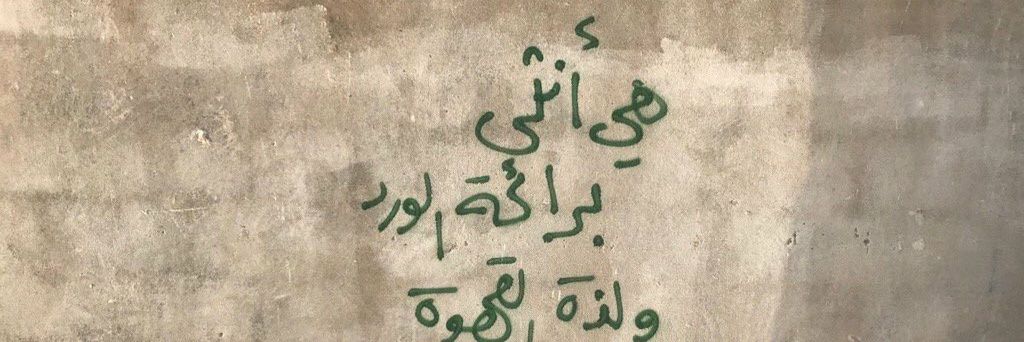 هي أنثى
برائحة الورد
ولذة القهوة